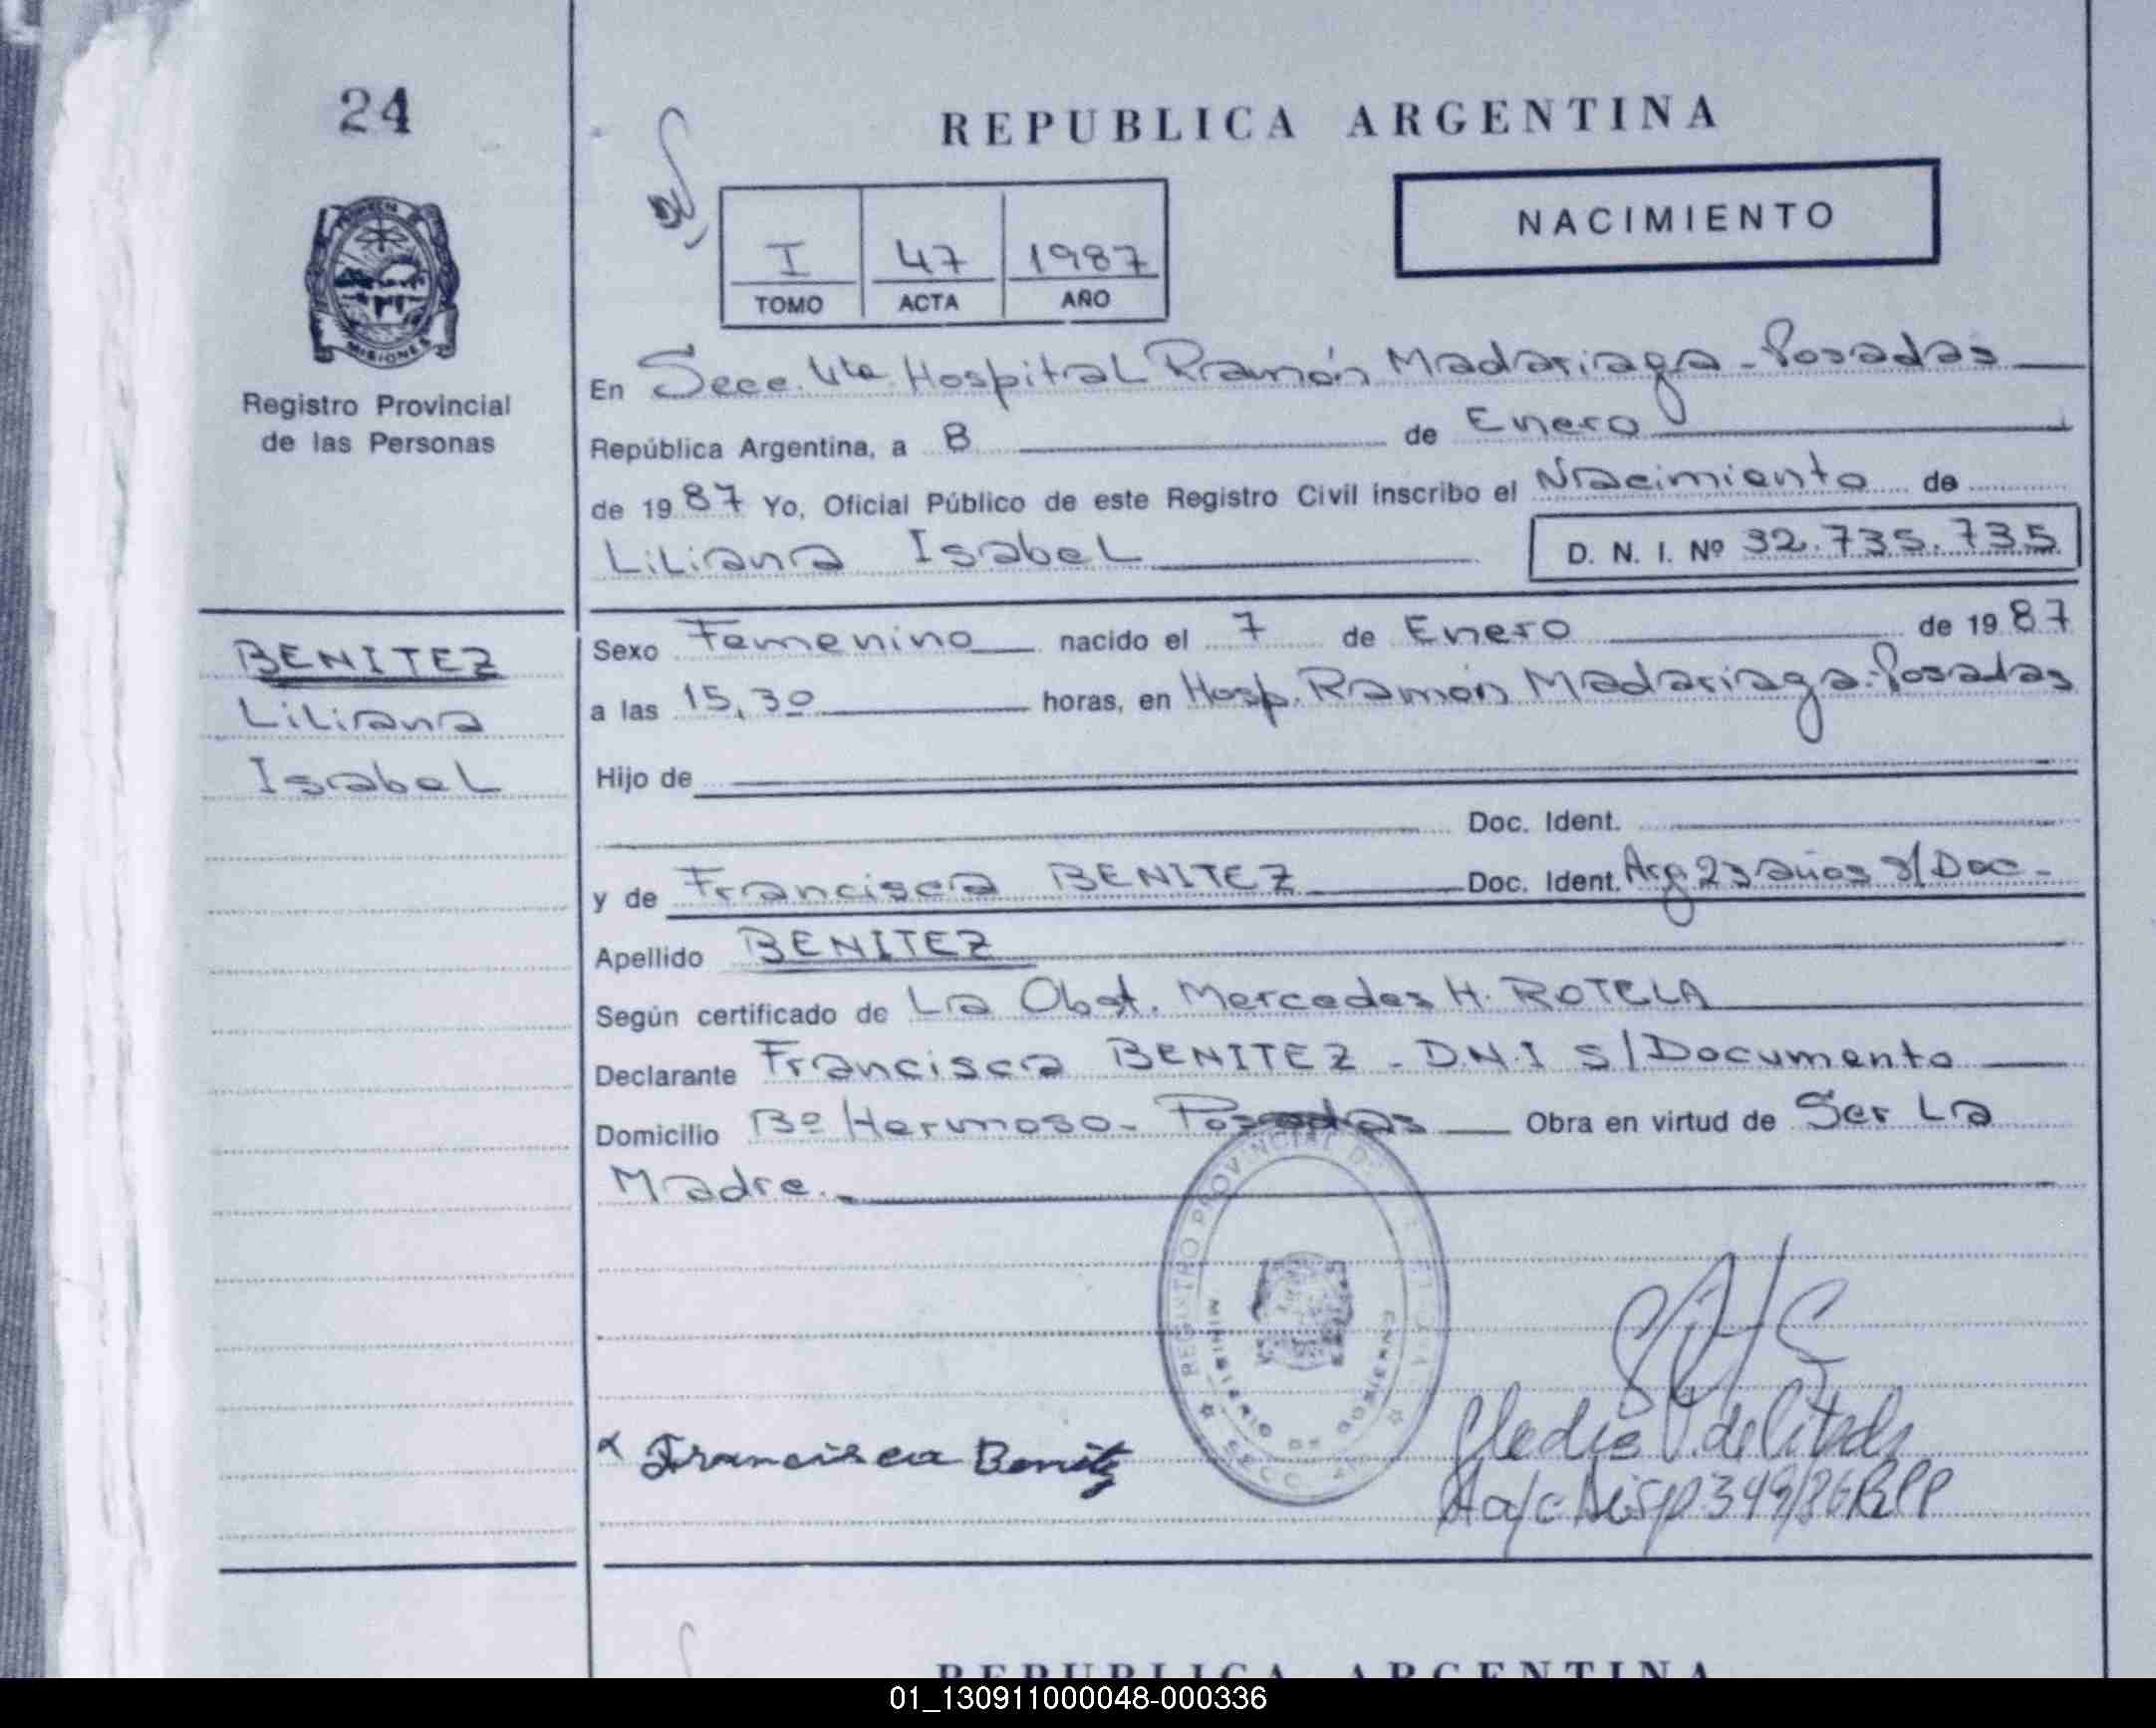 24
REPUBLICA ARGENTINA
NACIMIENTO
I 47 1987
TOMO ACTA AÑO
MISIONES
Registro Provincial
de las Personas
En Secc. 4ta. Hospital Ramón Madariaga - Posadas
República Argentina, a 8 de Enero
de 1987 Yo, Oficial Público de este Registro Civil inscribo el Nacimiento de
Liliana Isabel D. N. I. Nº 32.735.735
BENITEZ
Liliana
Isabel
Sexo Femenino nacido el 7 de Enero de 1987
a las 15,30 horas, en Hosp. Ramón Madariaga - Posadas
Hijo de
Doc. Ident.
y de Francisca BENITEZ Doc. Ident. Arg 23 años S/Doc -
Apellido BENITEZ
Según certificado de La Obst. Mercedes H. ROTELA
Declarante Francisca BENITEZ - D.N.I S/Documento
Domicilio Bº Hermoso - Posadas Obra en virtud de Ser La
Madre.
REGISTRO PROVINCIAL DE
MINISTERIO DE GOBIERNO
SECC.
x Francisca Benitz
A/c Disp 349/86 RPP
REPUBLICA ARGENTINA
01_130911000048-000336